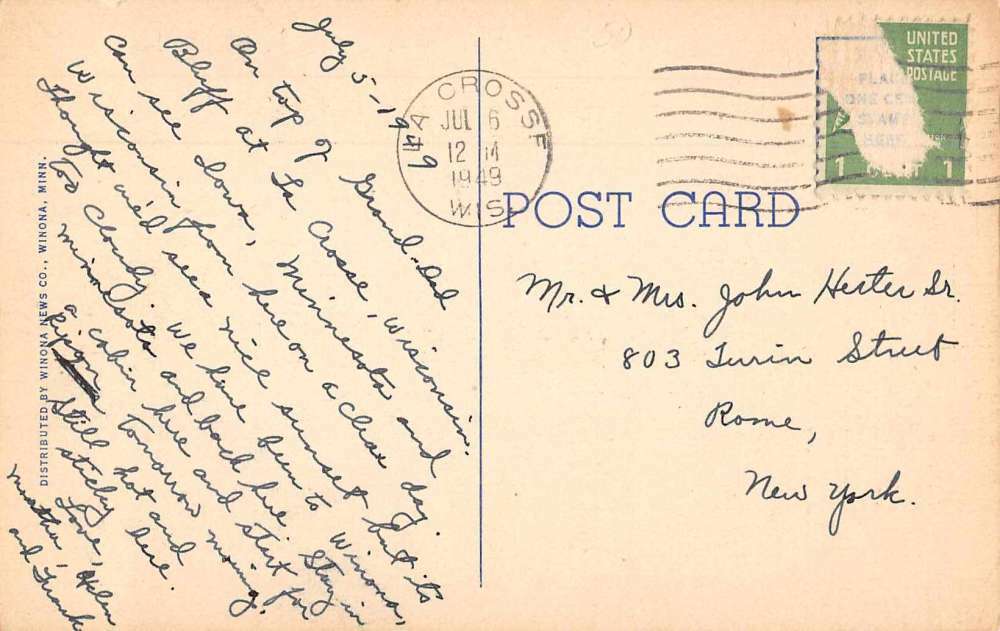 July 5-1949
On top of Grand-dad
Bluff at La Crosse, Wisconsin.
Can see Iowa, Minnesota and
Wisconsin from here on a clear day.
Thought we'd see a nice sunset but its
Too cloudy. We have been to Winona,
Minnesota and back here. Stay in
a cabin here and start for
Ripon tomorrow morning.
Still hot and
sticky here.
Love,
Martha, Helen
and Frank
DISTRIBUTED BY WINONA NEWS CO., WINONA, MINN.
LA CROSSE
JUL 6
12 M
1949
WIS
UNITED
STATES
POSTAGE
PLACE
ONE CENT
STAMP
HERE
1 1
POST CARD
Mr. & Mrs. John Hester Sr.
803 Turin Street
Rome,
New York.